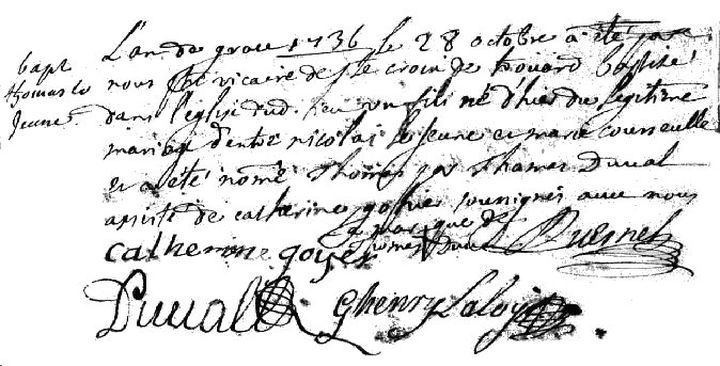 bapt
thomas le
Jeune
L'an de grace 1736 le 28 octobre a été par
nous pbre vicaire de Ste croix de houard baptisé
dans l'eglise dud. lieu un fils né d'hier du legitime
mariage d'entre nicolas le jeune et marie courseulle
et a été nommé Thomas par Thomas Duval
assisté de catherine goyer sousignés avec nous
la marque de
Thomas Duval
catherine goyer
Quesnel
Duual
Ghenry Leloy